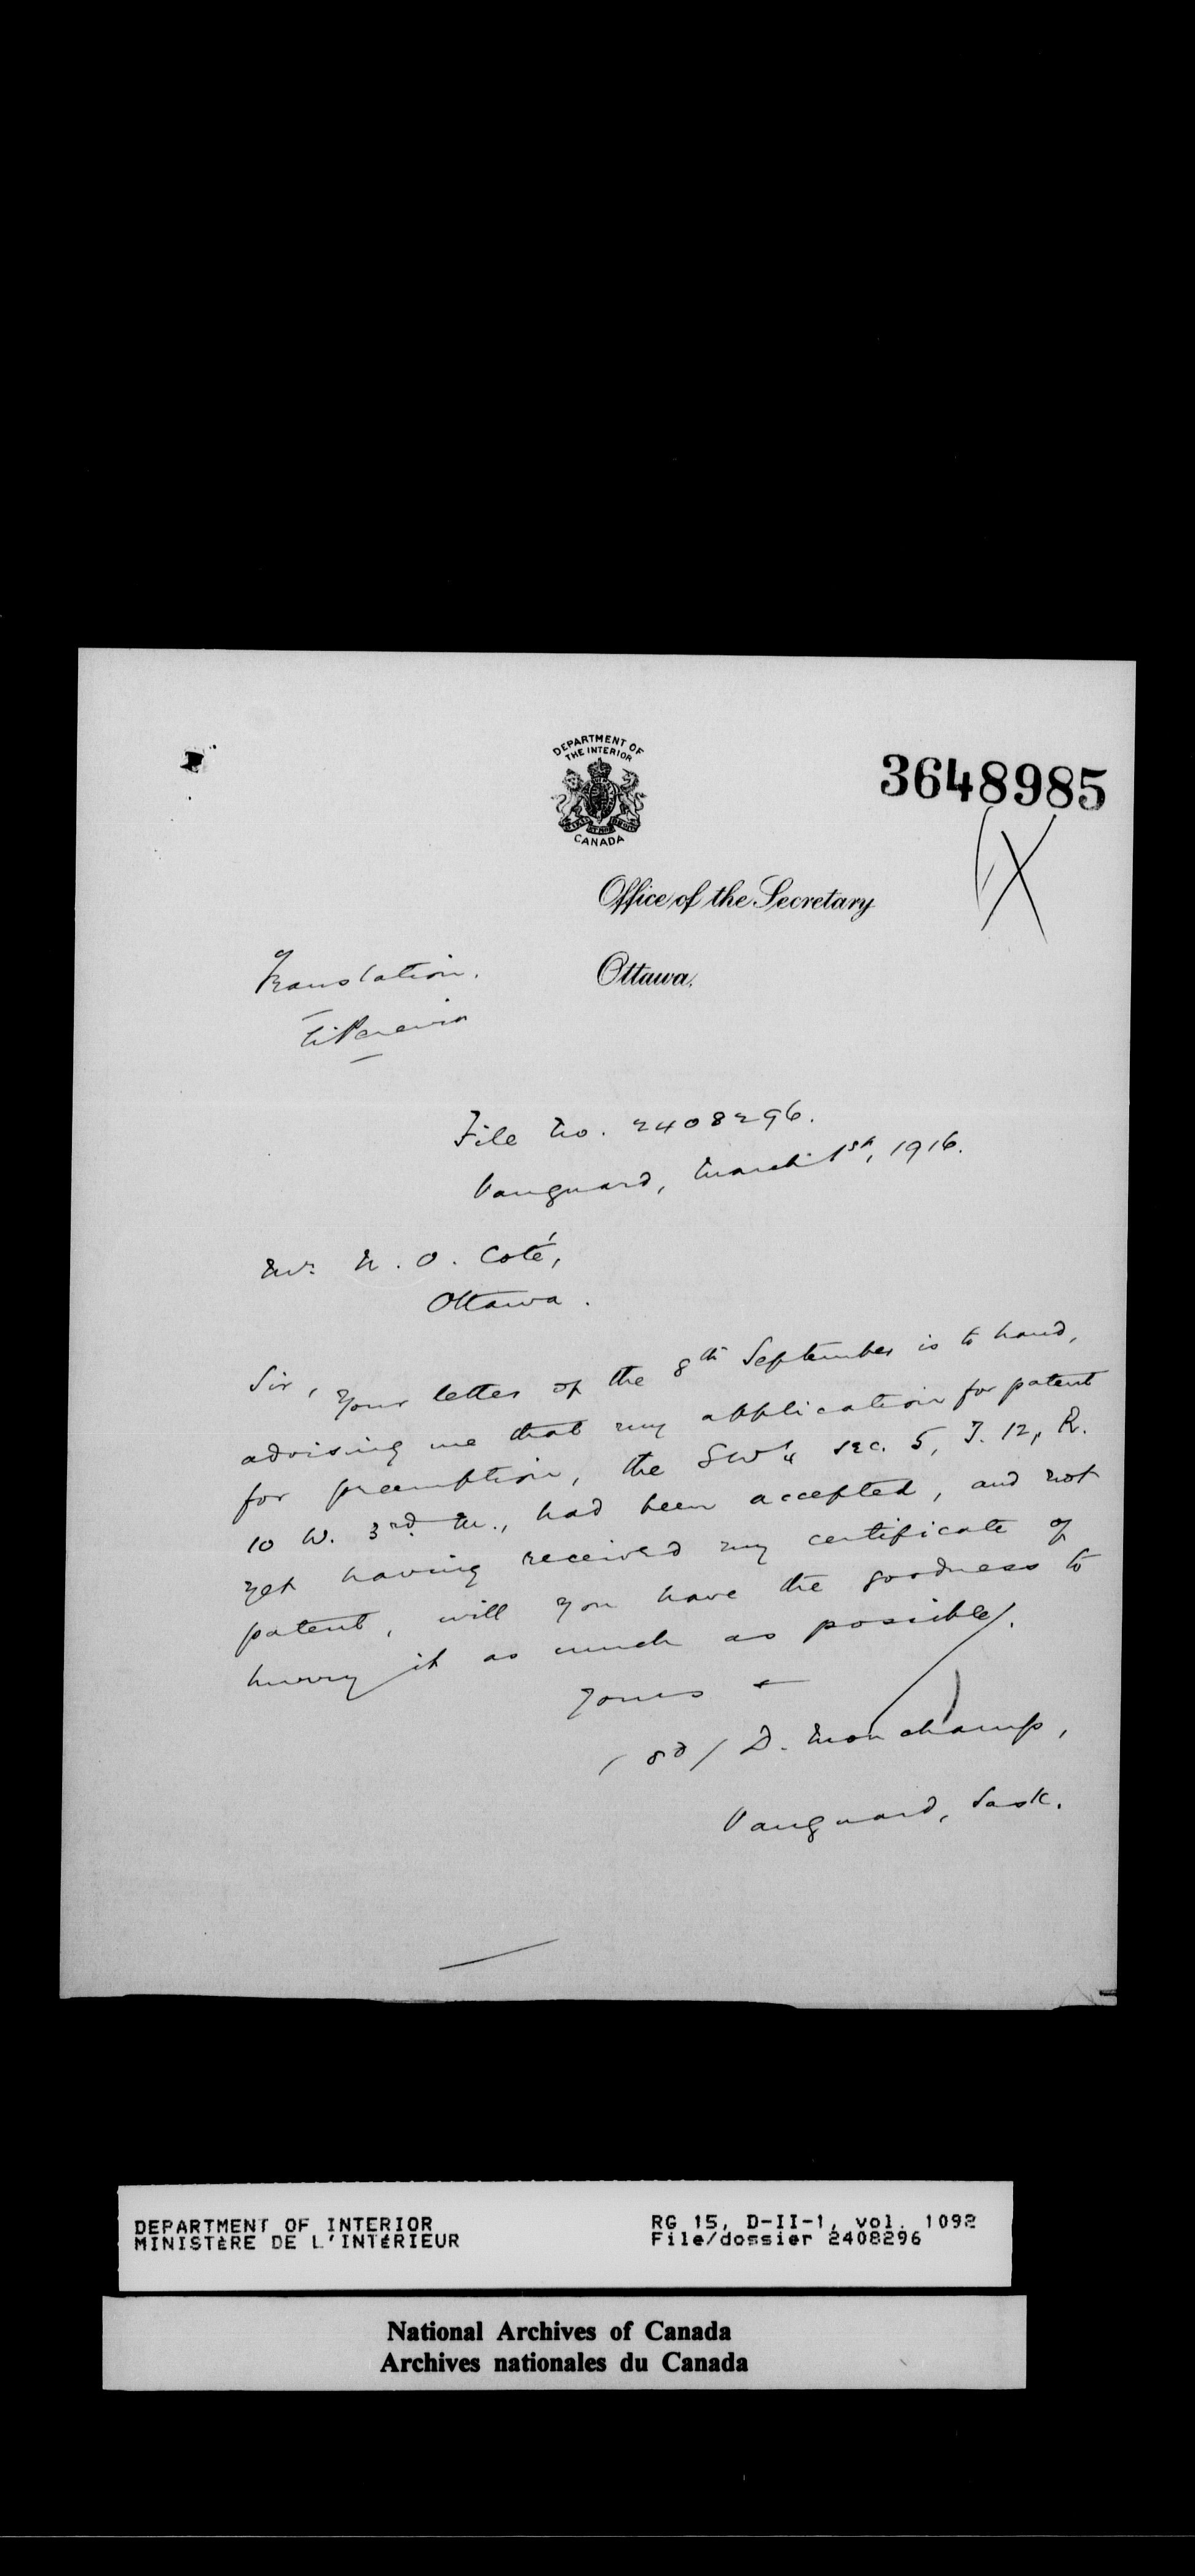 DEPARTMENT OF
THE INTERIOR
CANADA
3648985
Office of the Secretary
Ottawa,
Translation.
File No. 2408296.
Vanguard, March 1st, 1916.
Mr. N. O. Coté,
Ottawa.
Sir, Your letter of the 8th September is to hand,
advising me that my application for patent
for preemption, the SW 1/4 sec. 5, T. 12, R.
10 W. 3rd M., had been accepted, and not
yet having received my certificate of
patent, will you have the goodness to
hurry it as much as possible.
Yours
(sd) D. Monchamp,
Vanguard, Sask.
DEPARTMENT OF INTERIOR
MINISTÈRE DE L'INTÉRIEUR
RG 15, D-II-1, vol. 1092
File/dossier 2408296
National Archives of Canada
Archives nationales du Canada